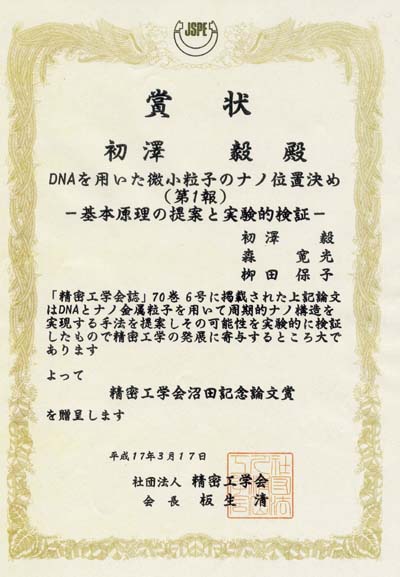 JSPE
賞状
初澤 毅 殿
DNAを用いた微小粒子のナノ位置決め
(第1報)
－基本原理の提案と実験的検証－
初澤 毅
森 寛光
柳田 保子
「精密工学会誌」70巻 6号に掲載された上記論文
はDNAとナノ金属粒子を用いて周期的ナノ構造を
実現する手法を提案しその可能性を実験的に検証
したもので精密工学の発展に寄与するところ大で
あります
よって
精密工学会沼田記念論文賞
を贈呈します
平成17年3月17日
社団法人 精密工学会
会長 板生 清